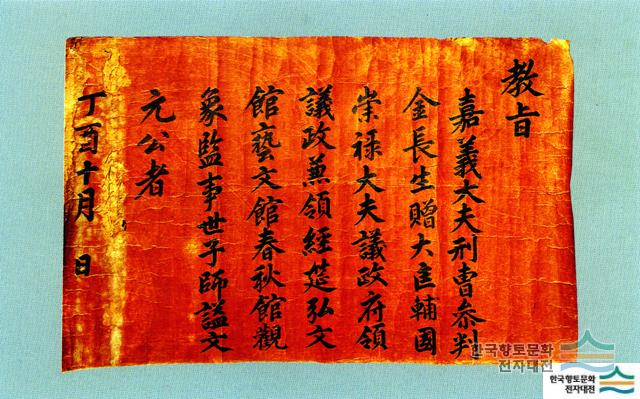 教旨
嘉義大夫刑曹叅判
金長生贈大匡輔國
崇祿大夫議政府領
議政兼領經筵弘文
館藝文館春秋館觀
象監事世子師諡文
元公者
丁酉十月 日
한국향토문화
전자대전
한국향토문화
전자대전